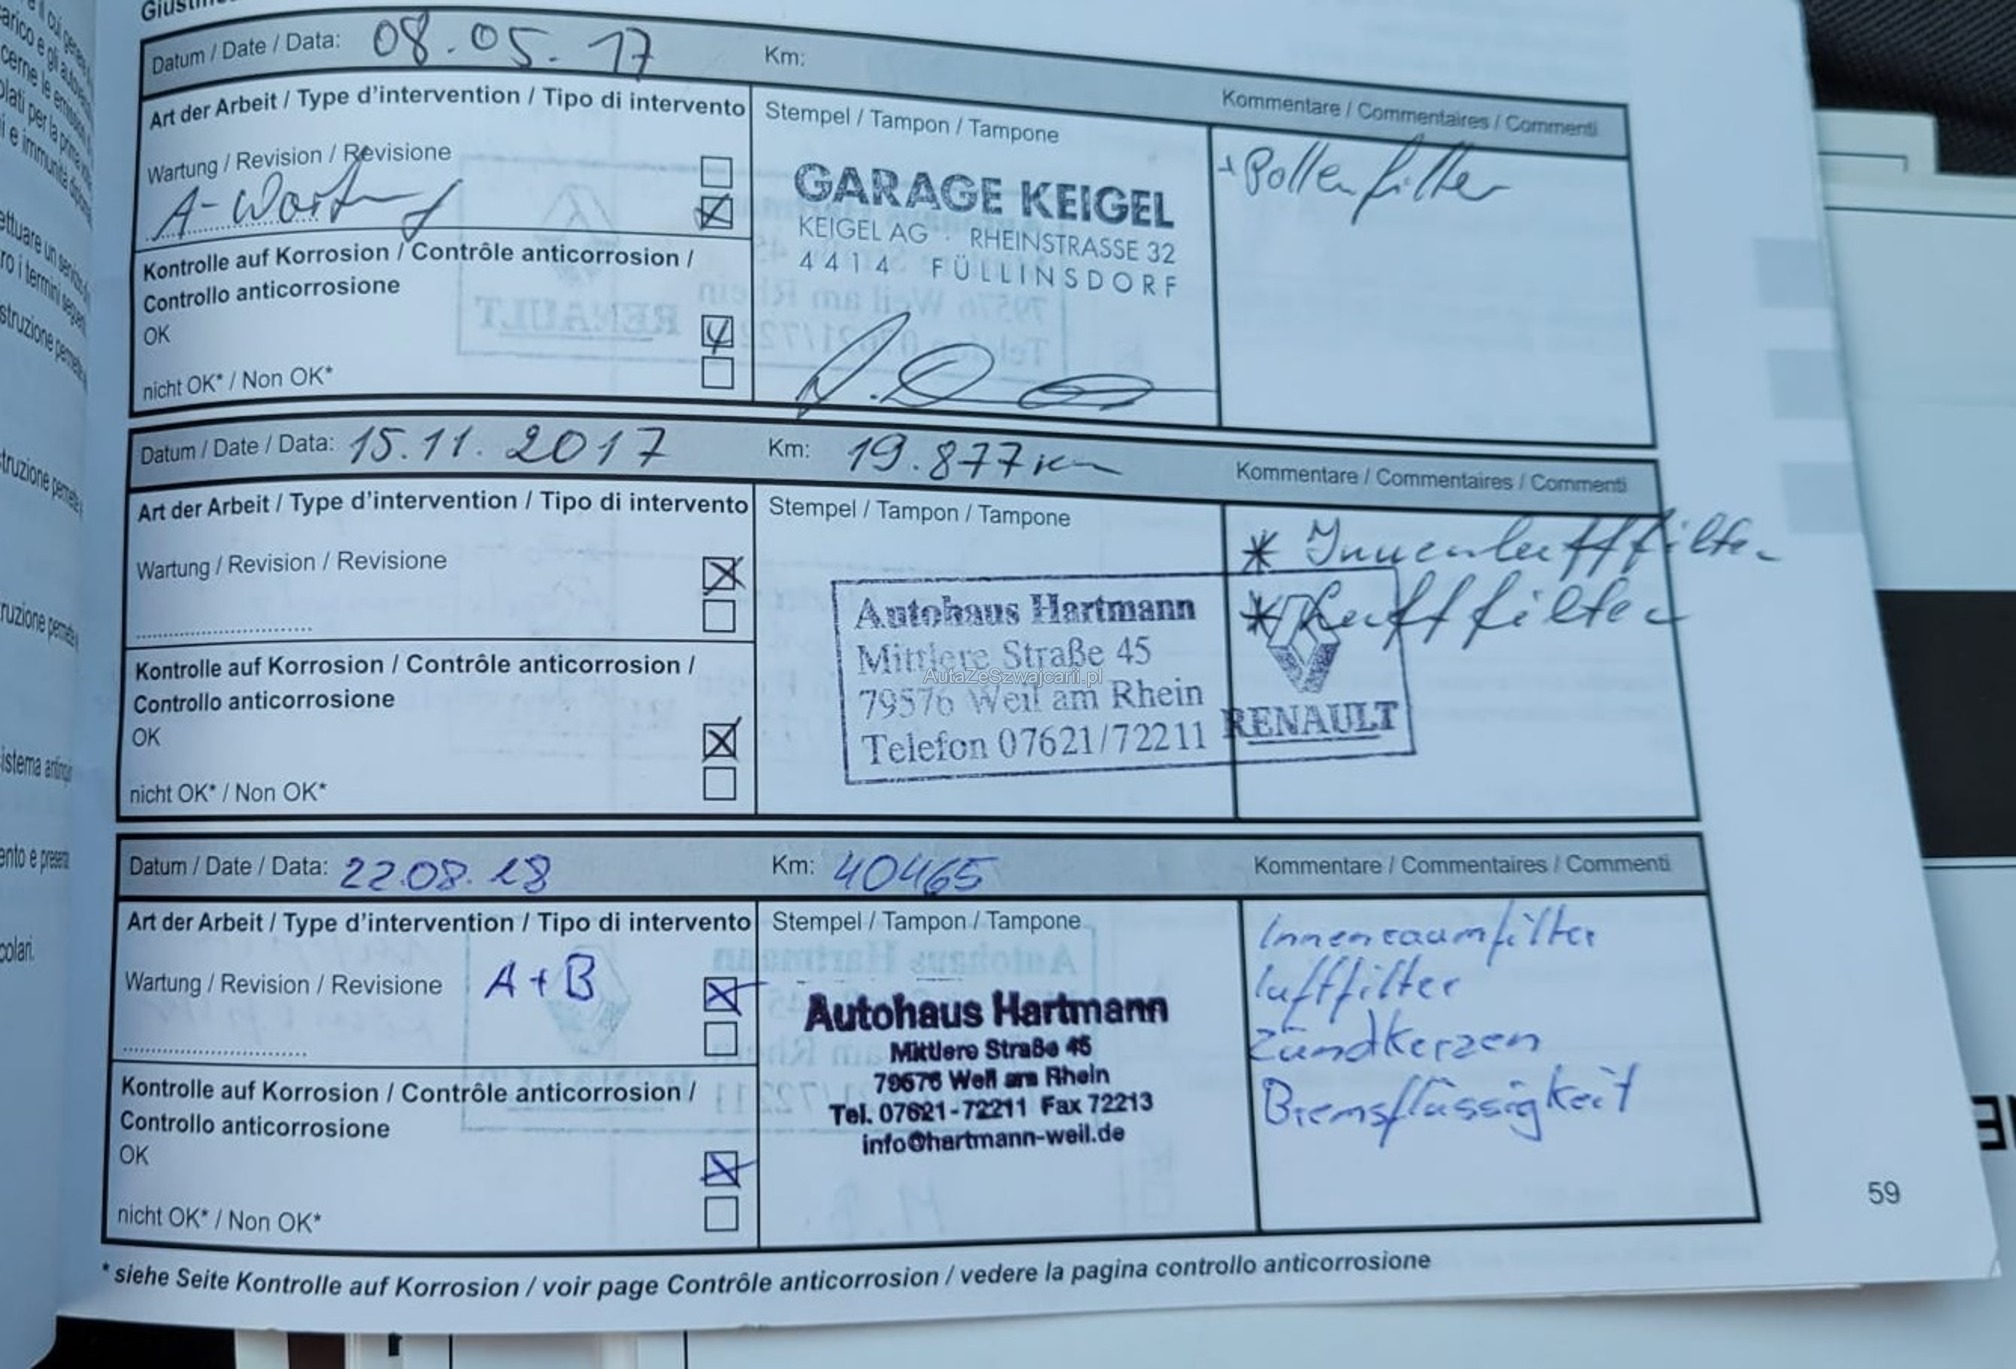 Datum / Date / Data: 08.05.17 Km:
Kommentare / Commentaires / Commenti
Art der Arbeit / Type d'intervention / Tipo di intervento
Stempel / Tampon / Tampone
Wartung / Revision / Revisione
A-Wartung
+ Pollenfilter
GARAGE KEIGEL
KEIGEL AG · RHEINSTRASSE 32
4414 FÜLLINSDORF
Kontrolle auf Korrosion / Contrôle anticorrosion /
Controllo anticorrosione
OK
nicht OK* / Non OK*
Datum / Date / Data: 15.11.2017 Km: 19.877 km
Kommentare / Commentaires / Commenti
Art der Arbeit / Type d'intervention / Tipo di intervento
Stempel / Tampon / Tampone
Wartung / Revision / Revisione
* Innenluftfilter
* Luftfilter
Autohaus Hartmann
Mittlere Straße 45
79576 Weil am Rhein
Telefon 07621/72211
RENAULT
AutaZeSzwajcarii.pl
Kontrolle auf Korrosion / Contrôle anticorrosion /
Controllo anticorrosione
OK
nicht OK* / Non OK*
Datum / Date / Data: 22.08.18 Km: 40465
Kommentare / Commentaires / Commenti
Art der Arbeit / Type d'intervention / Tipo di intervento
Stempel / Tampon / Tampone
Wartung / Revision / Revisione A + B
Innenraumfilter
Luftfilter
Zündkerzen
Bremsflüssigkeit
Autohaus Hartmann
Mittlere Straße 45
79576 Weil am Rhein
Tel. 07621-72211 Fax 72213
info@hartmann-weil.de
Kontrolle auf Korrosion / Contrôle anticorrosion /
Controllo anticorrosione
OK
nicht OK* / Non OK*
59
* siehe Seite Kontrolle auf Korrosion / voir page Contrôle anticorrosion / vedere la pagina controllo anticorrosione